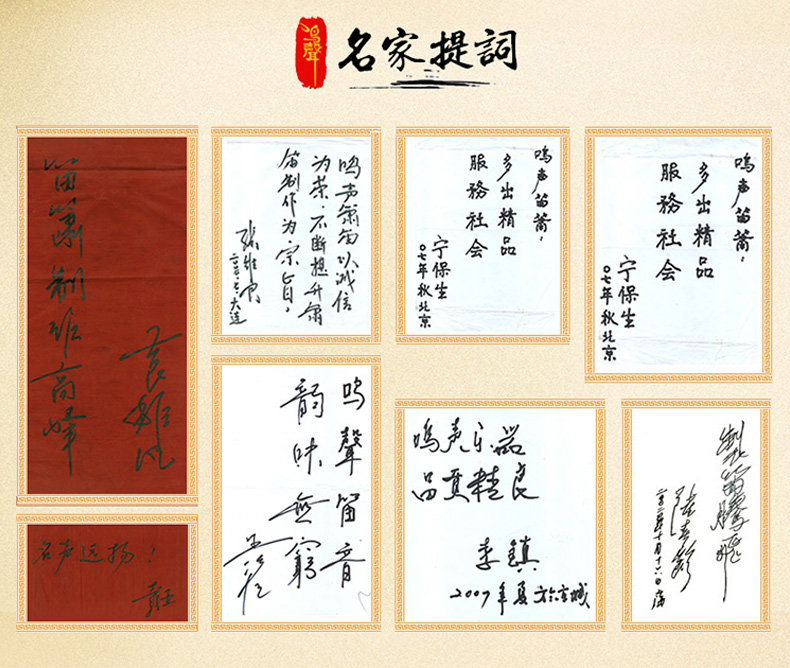 鸣聲
名家提詞
笛簫制作高峰
鸣声箫笛以诚信
为荣，不断提升箫
笛制作为宗旨，
张维良
大连
鸣声笛箫：
多出精品
服務社会
宁保生
〇七年秋北京
鸣声笛箫：
多出精品
服務社会
宁保生
〇七年秋北京
名声远扬！
鸣聲笛音
韻味無窮
鳴声乐器
品质精良
李镇
2007年夏于京城